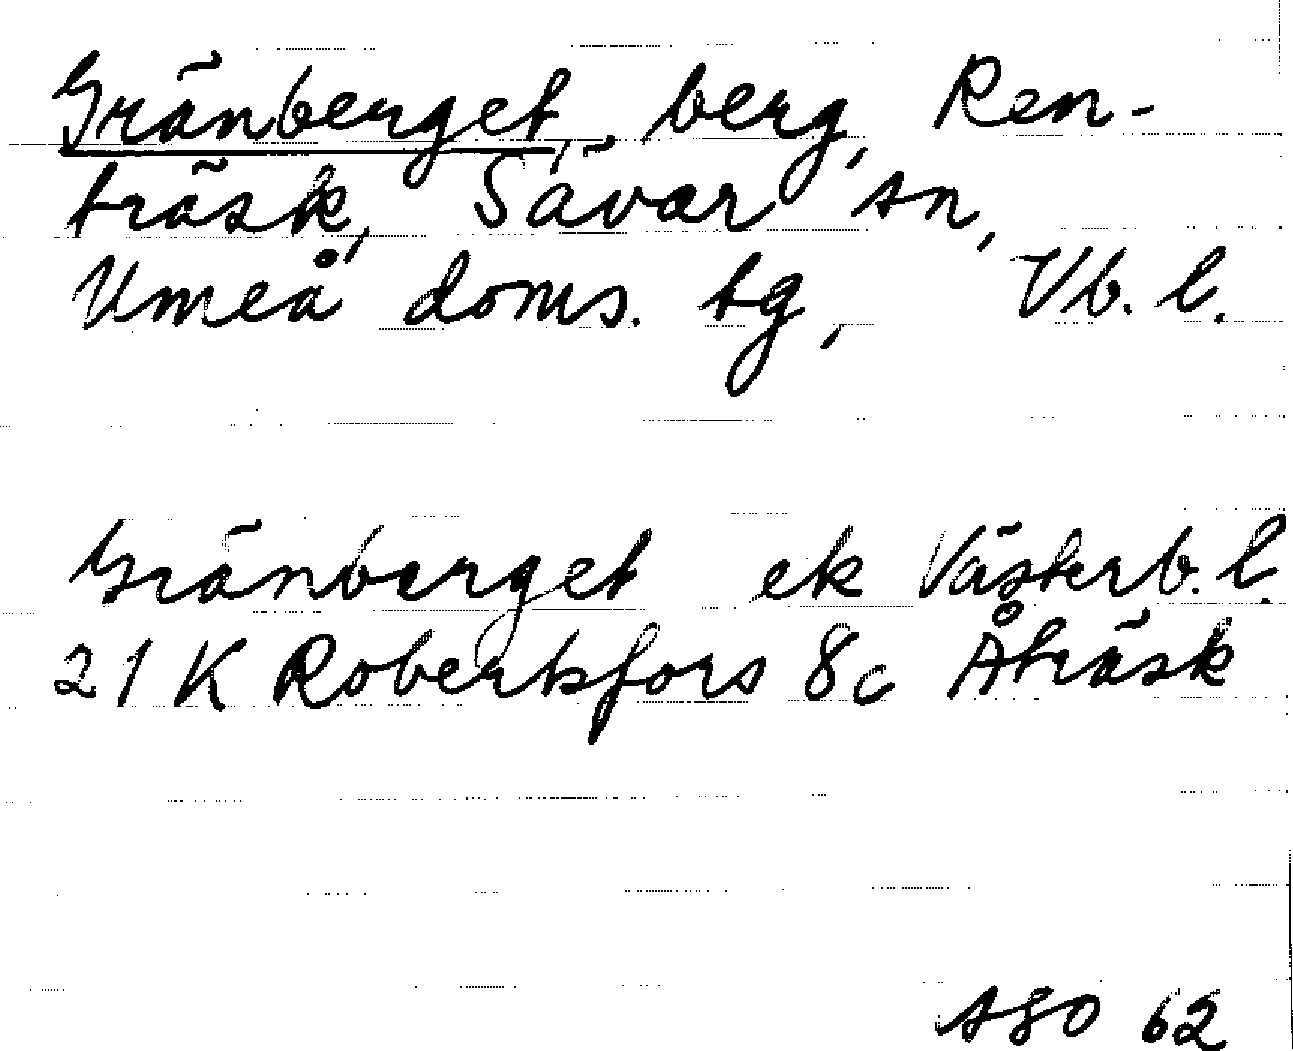 Gränberget, berg, Ren-
träsk, Sävar sn,
Umeå doms. tg, Vb. l.
Gränberget ek Västerb. l.
21 K Robertsfors 8c Åträsk
ASO 62